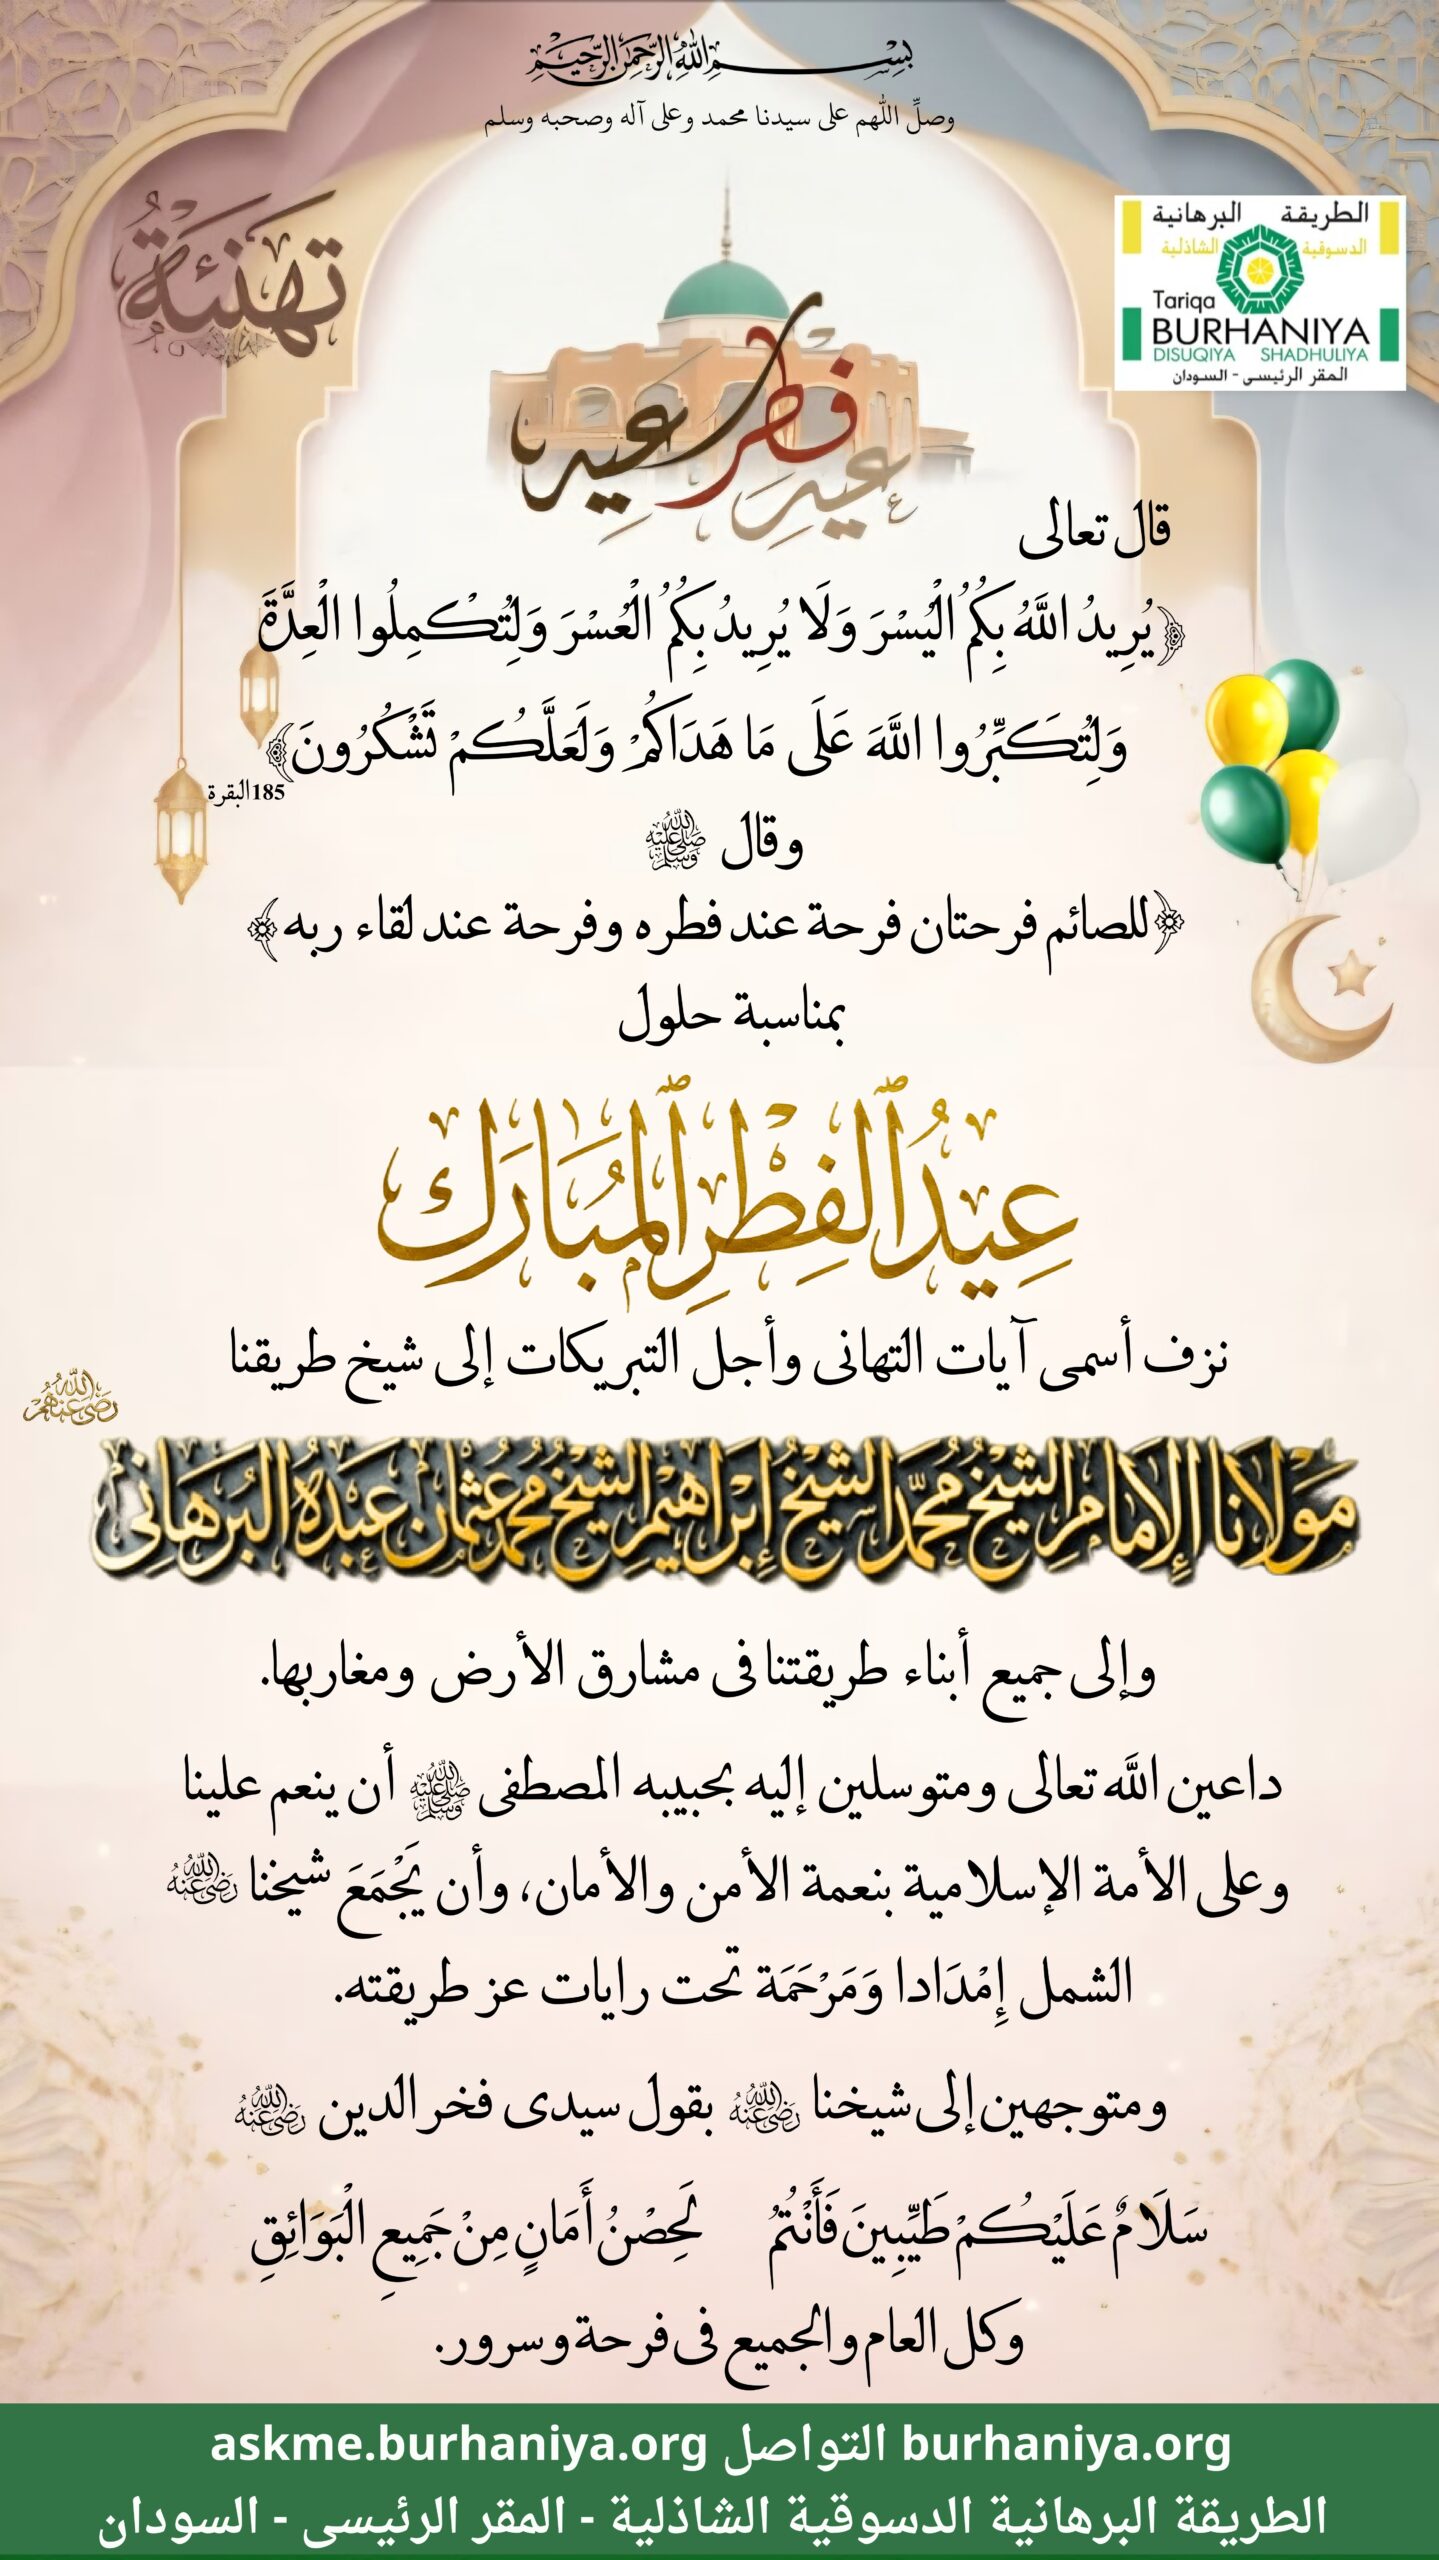 بِسْمِ اللهِ الرَّحْمَٰنِ الرَّحِيمِ
وصلِّ اللهم على سيدنا محمد وعلى آله وصحبه وسلم
تهنئة
الطريقة البرهانية
الدسوقية الشاذلية
Tariqa
BURHANIYA
DISUQIYA SHADHULIYA
المقر الرئيسى - السودان
عيد فطر عيد
قال تعالى
﴿يُرِيدُ اللَّهُ بِكُمُ الْيُسْرَ وَلَا يُرِيدُ بِكُمُ الْعُسْرَ وَلِتُكْمِلُوا الْعِدَّةَ
وَلِتُكَبِّرُوا اللَّهَ عَلَى مَا هَدَاكُمْ وَلَعَلَّكُمْ تَشْكُرُونَ﴾
185البقرة
وقال ﷺ
﴿للصائم فرحتان فرحة عند فطره وفرحة عند لقاء ربه﴾
بمناسبة حلول
عِيدُ ٱلفِطْرِ ٱلمُبَارَك
نزف أسمى آيات التهانى وأجل التبريكات إلى شيخ طريقنا
رضى الله عنهم
مَوْلَانَا الإِمَامِ الشَّيْخ مُحَمَّد الشَّيْخ إِبْرَاهِيم الشَّيْخ مُحَمَّد عُثْمَان عَبْدُهُ البُرْهَانِى
وإلى جميع أبناء طريقتنا فى مشارق الأرض ومغاربها.
داعين الله تعالى ومتوسلين إليه بحبيبه المصطفى ﷺ أن ينعم علينا
وعلى الأمة الإسلامية بنعمة الأمن والأمان، وأن يَجْمَعَ شيخنا رضى الله عنه
الشمل إِمْدَادا وَمَرْحَمَة تحت رايات عز طريقته.
ومتوجهين إلى شيخنا رضى الله عنه بقول سيدى فخر الدين رضى الله عنه
سَلَامٌ عَلَيْكُمْ طَيِّبِينَ فَأَنْتُمُ لَحِصْنُ أَمَانٍ مِنْ جَمِيعِ الْبَوَائِقِ
وكل العام والجميع فى فرحة وسرور.
burhaniya.org التواصل askme.burhaniya.org
الطريقة البرهانية الدسوقية الشاذلية - المقر الرئيسى - السودان